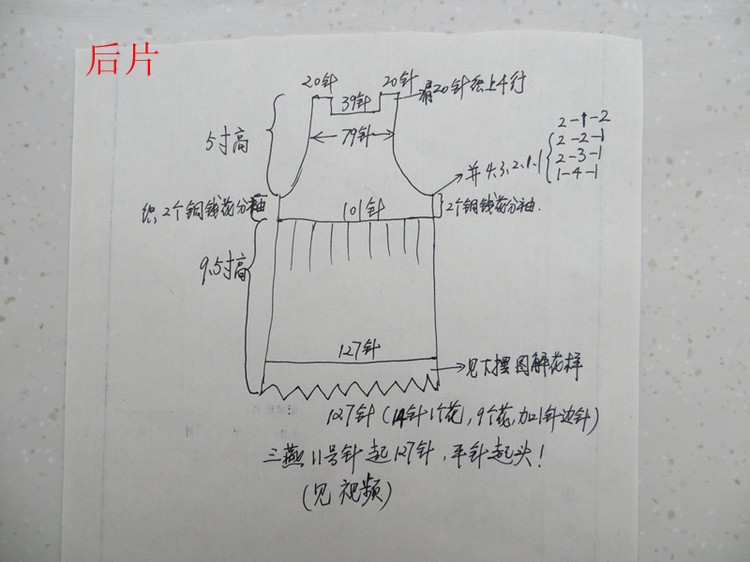 后片
20针 20针
39针 肩20针织上4行
5寸高
79针
2-1-2
2-2-1
2-3-1
1-4-1
并4.3.2.1.1
织2个铜钱花分袖
101针
2个铜钱花分袖.
9.5寸高
127针
见下摆图解花样
127针(14针1个花,9个花,加1针边针)
三燕11号针起127针,平针起头!
(见视频)